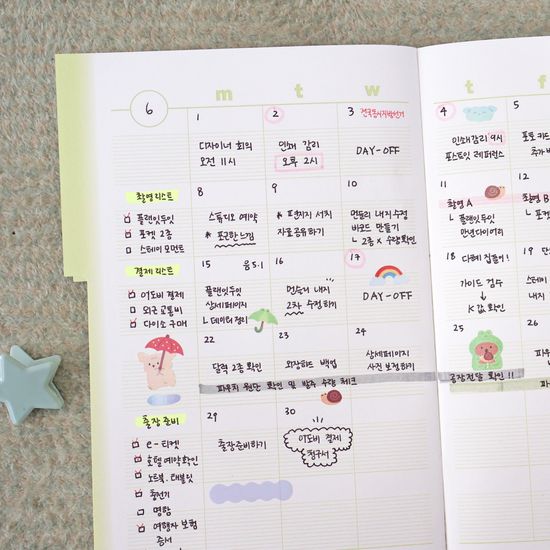 m t w t f
6
1
2
3 전국동시지방선거
4
5
디자이너 회의
오전 11시
인쇄 감리
오후 2시
DAY-OFF
인쇄감리 9시
포스트잇 레퍼런스
포토카드
촬영 리스트
플랜잇두잇
포켓 2종
스테이 모먼트
8
9
10
11
12
스튜디오 예약
* 포근한 느낌
* 편지지 서치
자료 공유하기
먼슬리 내지 수정
바운드 만들기
ㄴ 2종 × 수량확인
촬영 A
ㄴ 플랜잇두잇
만년다이어리
촬영 B
결제 리스트
여도비 결제
외근 교통비
다이소 구매
15 음5.1
16
17
18 다례 집들이!
19
플랜잇두잇
상세페이지
ㄴ 데이터 정리
먼슬리 내지
2차 수정하기
DAY-OFF
가이드 검수
↓
K값 확인
스테이
내지
22
23
24
25
26
달력 2종 확인
외장하드 백업
상세페이지
사진 보정하기
파우치 원단 확인 및 발주 수량 체크
공장전달 확인!!
출장 준비
e-티켓
호텔 예약확인
노트북, 태블릿
충전기
명함
여행자 보험
증서
29
30
출장준비하기
어도비 결제
청구서